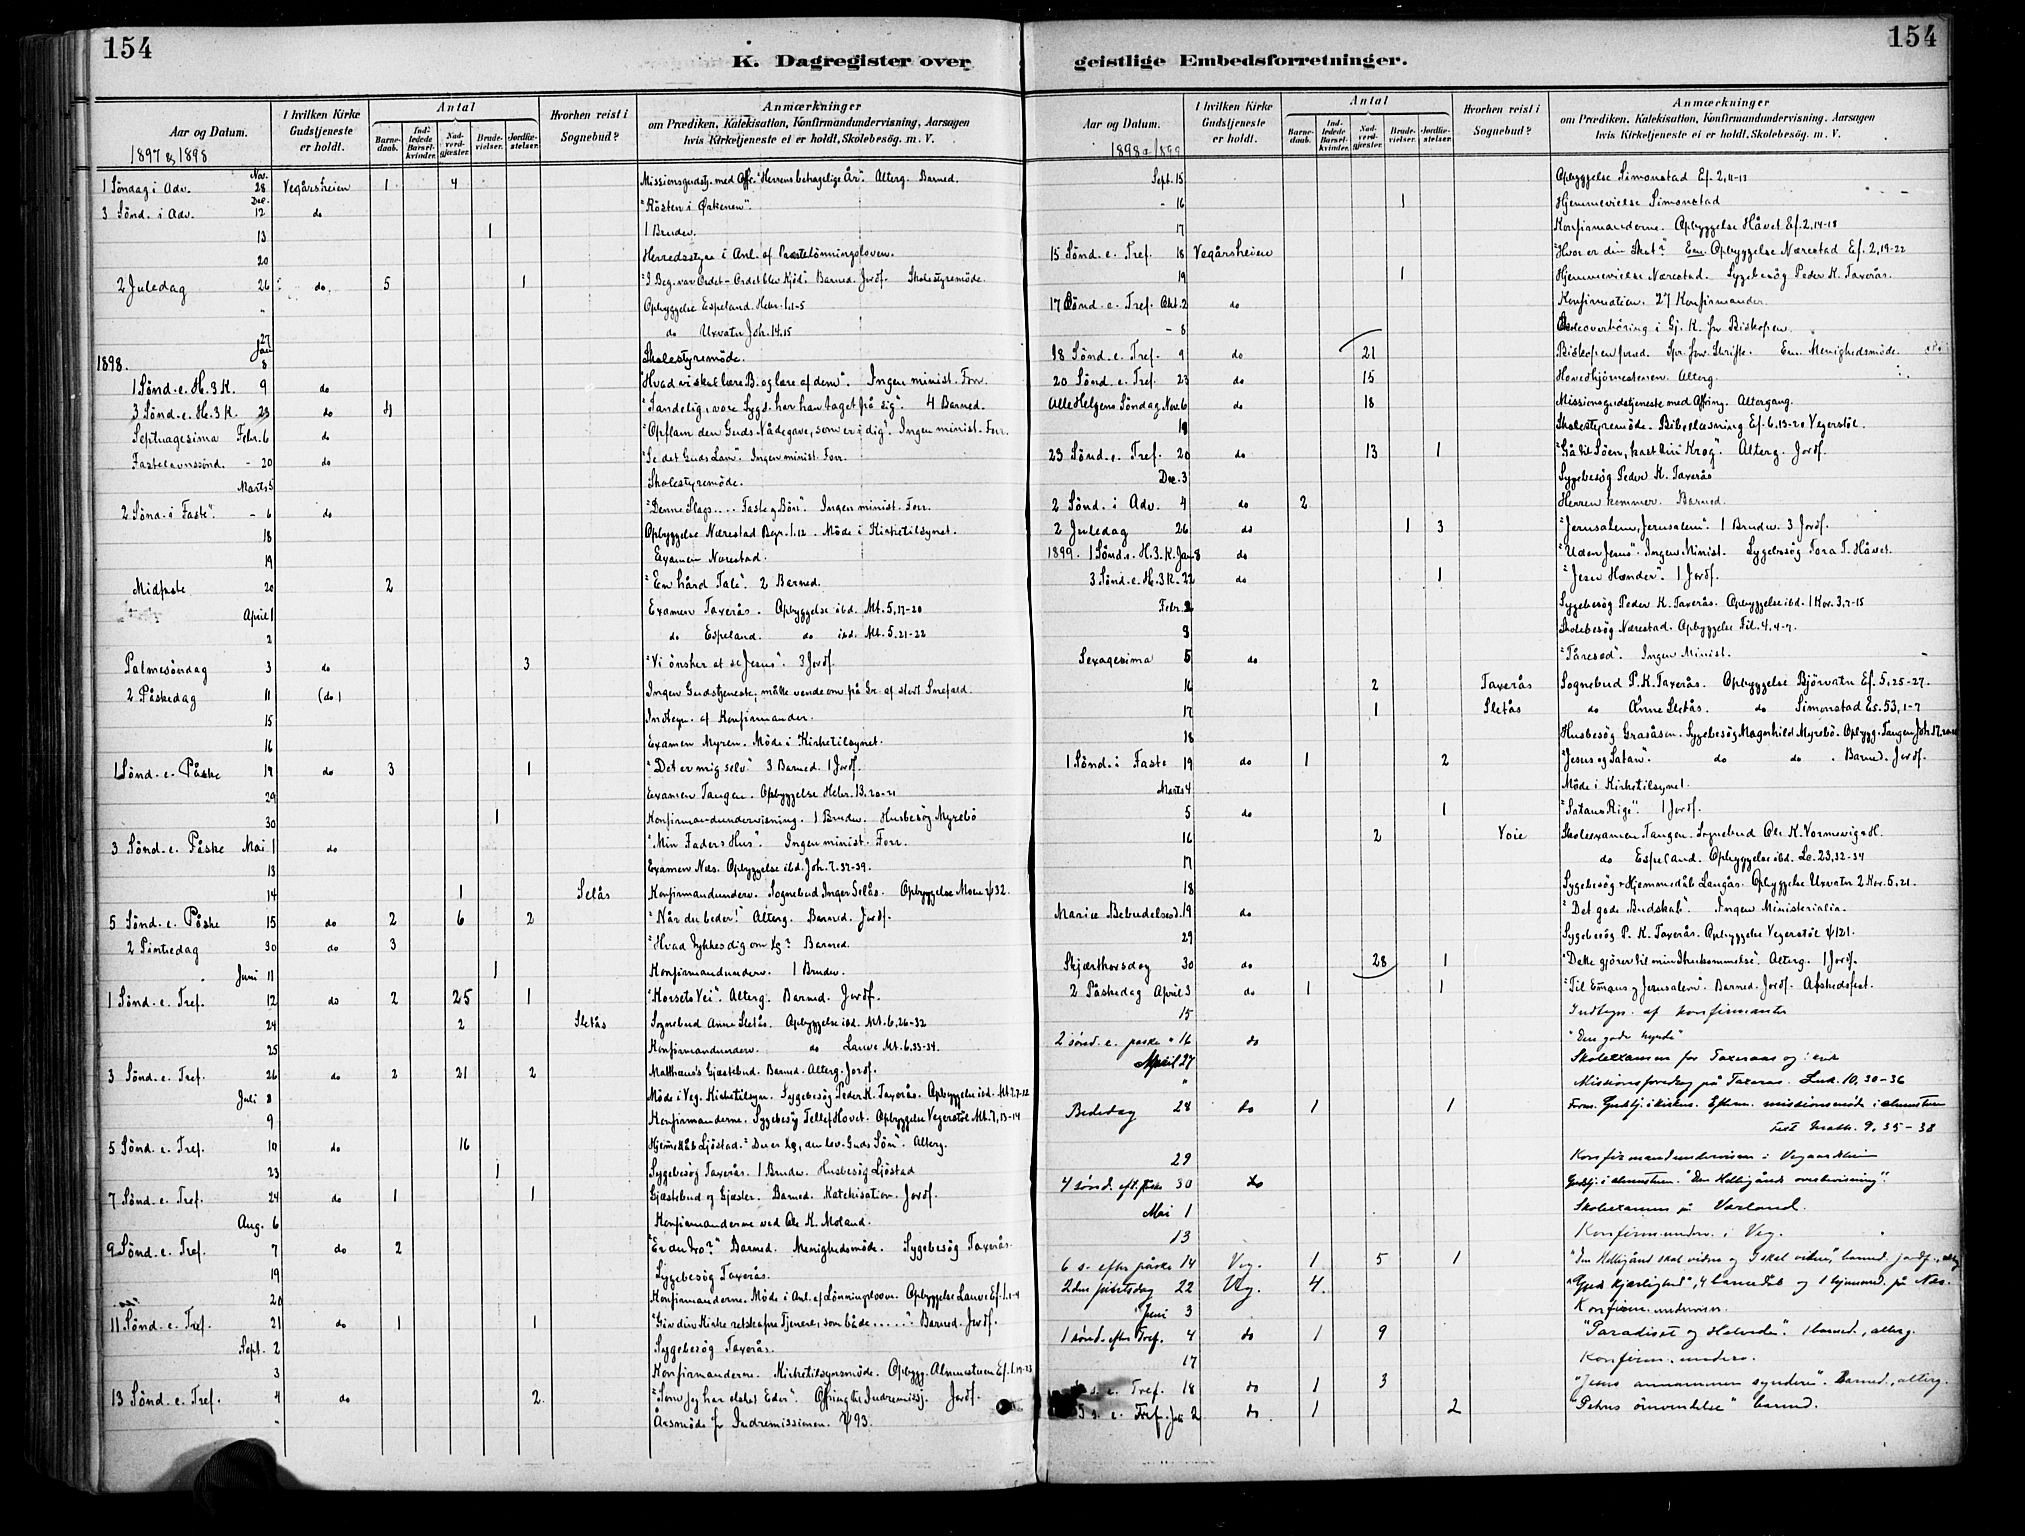 154
154
K. Dagregister over geistlige Embedsforretninger.
Aar og Datum.
1897 & 1898
I hvilken Kirke Gudstjeneste er holdt.
Antal
Barne-daab.
Ind-ledede Barsel-kvinder.
Nad-verd-gjæster.
Brude-vielser.
Jordfæ-stelser.
Hvorhen reist i Sognebud?
Anmærkninger
om Prædiken, Katekisation, Konfirmandundervisning, Aarsagen
hvis Kirketjeneste ei er holdt, Skolebesøg. m. V.
1 Söndag i Adv. Nov. 28 Vegårsheien 1 4 Missionsgudstj. med Offr. "Herrens behagelige År". Alterg. Barned.
3 Sönd. i Adv. Dec. 12 do "Rösten i Örkenen".
13 1 1 Brudev.
20 Herredsstyre i Anl. af Præstelönningsloven.
2 Juledag 26 do. 5 1 "I Beg. var Ordet - Ordet blev Kjöd". Barned. Jordf. Skolestyremöde.
" Opbyggelse Espeland. Hebr. 1.1-5
27 do Uxvatn Joh. 14.15
1898. Jan 8 Skolestyremöde.
1 Sönd. e. H. 3 K. 9 do "Hvad vi skal lære B. og lære af dem". Ingen minist. Forr.
3 Sönd. e. H. 3 K. 23 do 4 "Sandelig, vore Sygd. har han taget på sig". 4 Barned.
Septuagesima Febr. 6 do "Opflam den Guds Nådegave, som er i dig". Ingen minist. Forr.
Fastelavnssönd. - 20 do "Se det Guds Lam". Ingen minist. Forr.
Marts 5 Skolestyremöde.
2 Sönd. i Faste - 6 do "Denne Slags.... Faste og Bön". Ingen minist. Forr.
18 Opbyggelse Nærestad. 1.12. Möde i Kirketilsynet.
19 Examen Nærestad.
Midfaste 20 2 "En hård Tale". 2 Barned.
April 1 Examen Taxerås. Opbyggelse ibd. Mt. 5,17-20
2 do Espeland. do ibd. Mt. 5.21-22
Palmesöndag 3 do 3 "Vi önsker at se Jesus". 3 Jordf.
2 Påskedag 11 (do) Ingen Gudstjeneste, måtte vende om på Gr. af stort Snefald.
15 Indtegn. af Konfirmander.
16 Examen Myren. Möde i Kirketilsynet.
1 Sönd. e. Påske 17 do 3 1 "Det er mig selv" 3 Barned. 1 Jordf.
29 Examen Tangen. Opbyggelse Hebr. 13.20-21
30 1 Konfirmandundervisning. 1 Brudev. Husbesög Myrebö
3 Sönd. e. Påske Mai 1 do "Min Faders Hus". Ingen minist. Forr.
13 Examen Næs. Opbyggelse ibd. Joh. 7.37-39.
14 1 Selås Konfirmandunderv. Sognebud Inger Selås. Opbyggelse Moen ψ32.
5 Sönd. e. Påske 15 do 2 6 2 "Når du beder!" Alterg. Barned. Jordf.
2 Pintsedag 30 do 3 "Hvad tykkes dig om Xs? Barned.
Juni 11 1 Konfirmandunderv. 1 Brudev.
1 Sönd. e. Tref. 12 do 2 25 1 "Korsets Vei". Alterg. Barned. Jordf.
24 2 Sletås Sognebud Anne Sletås. Opbyggelse ibd. Mt. 6,26-32
25 Konfirmandunderv. do Lauve Mt. 6.33-34.
3 Sönd. e. Tref. 26 do 2 21 2 Matthæus's Gjæstebud. Barned. Alterg. Jordf.
Juli 8 Möde i Veg. Kirketilsyn. Sygebesög Peder K. Taxerås. Opbyggelse ibd. Mt 7.7-12
9 Konfirmanderne. Sygebesög Tellef Hovet. Opbyggelse Vegerstöl Mt. 7, 13-14
5 Sönd. e. Tref. 10 do 16 Hjemmedåb Ljöstad. "Du er Xs, den lev. Guds Sön". Alterg.
23 1 Sygebesög Taxerås. 1 Brudev. Husbesög Ljöstad
7 Sönd. e. Tref. 24 do 1 1 Gjæstebud og Gjæster. Barned. Katekisation. Jordf.
Aug. 6 Konfirmanderne ved Ole K. Moland.
9 Sönd. e. Tref. 7 do 2 "Er du tro?" Barned. Menighedsmöde. Sygebesög Taxerås.
19 Sygebesög Taxerås.
20 Konfirmanderne. Möde i Anl. af Lönningsloven. Opbyggelse Lauve Ef. 1.1-4
11 Sönd. e. Tref. 21 do 1 1 "Giv din Kirke retskafne Tjenere, som både....." Barned. Jordf.
Sept. 2 Sygebesög Taxerås.
3 Konfirmanderne. Kirketilsynsmöde. Opbygg. Almestuen Ef. 1.19-23
13 Sönd. e. Tref. 4 do 2 "Som jeg har elsket Eder". Offring til Indremissj. Jordf.
" Årsmöde f. Indremissionen. ψ93.
Aar og Datum.
1898 & 1899
I hvilken Kirke Gudstjeneste er holdt.
Antal
Barne-daab.
Ind-ledede Barsel-kvinder.
Nad-verd-gjæster.
Brude-vielser.
Jordfæ-stelser.
Hvorhen reist i Sognebud?
Anmærkninger
om Prædiken, Katekisation, Konfirmandundervisning, Aarsagen
hvis Kirketjeneste ei er holdt, Skolebesøg. m. V.
Sept. 15 Opbyggelse Simonstad Ef. 2,11-13
- 16 1 Hjemmevielse Simonstad
17 Konfirmanderne. Opbyggelse Håvet Ef. 2,14-18
15 Sönd. e. Tref. 18 Vegårsheien "Hvor er din Skat? Em. Opbyggelse Nærestad Ef. 2,19-22
19 1 Hjemmevielse Nærestad. Sygebesög Peder K. Taxerås.
17 Sönd. e. Tref. Okt. 2 do Konfirmation. 27 Konfirmander
- 8 overhöring i Gj. K. for Biskopen.
18 Sönd. e. Tref. 9 do 21 Biskopen præd. Spr. fov. Skrifte. Em. Menighedsmöde.
20 Sönd. e. Tref. 23 do 15 Hovedhjörnestenen. Alterg.
Alle Helgens Söndag Nov. 6 do 18 Missionsgudstjeneste med Offring. Altergang.
19 Skolestyremöde. Bibellæsning Ef. 6,13-20 Vegerstöl.
23 Sönd. e. Tref. 20 do 13 1 "Gå til Söen, kast din Krog". Alterg. Jordf.
Dec. 3 Sygebesög Peder K. Taxerås
2 Sönd. i Adv. 4 do 2 Herren kommer. Barned.
2 Juledag 26 do 1 3 "Jerusalem, Jerusalem". 1 Brudev. 3 Jordf.
1899. 1 Sönd. e. H. 3. K. Jan 8 do "Uden Jesus". Ingen Minist. Sygebesög Tora T. Håvet.
3 Sönd. e. H. 3 K. 22 do 1 "Jesu Hænder". 1 Jordf.
Febr. 2 Sygebesög Peder K. Taxerås. Opbyggelse ibd. 1 Kor. 3.7-15
3 Skolebesög Nærestad. Opbyggelse Fil. 4.4-7.
Sexagesima 5 do "Såresæd". Ingen Minist.
16 2 Taxerås Sognebud P. K. Taxerås. Opbyggelse Björvatn Ef. 5,25-27.
17 1 Sletås do Anne Sletås. do Simonstad Es. 53,1-7
18 Husbesög Grasåsen. Sygebesög Magnhild Myrebö. Opbygg. Tangen Joh. 17,20-
1 Sönd. i Faste 19 do 1 2 "Jesus og Satan". do do. Barned. Jordf.
Marts 4 Möde i Kirketilsynet.
5 do 1 "Satans Rige". 1 Jordf.
16 2 Voie Skoleexamen Tangen. Sognebud Ole K. Vormevig + H.
17 do Espeland. Opbyggelse ibd. Lc. 23,32-34
18 Sygebesög + Hjemmedåb Langås. Opbyggelse Uxvatn 2 Kor. 5.21.
Mariæ Bebudelsesd. 19 do "Det gode Budskab". Ingen Ministerialia.
29 Sygebesög P. K. Taxerås. Opbyggelse Vegerstöl ψ121.
Skjærthorsdag 30 do 28 1 "Dette gjörer til min Ihukommelse". Alterg. 1 Jordf.
2 Påskedag April 3 do 1 1 "Til Emaus og Jerusalem". Barned. Jordf. Afskedsfest.
15 Indtegn. af konfirmanter
2 sönd. e. paske " 16 do "Den gode hyrde"
April 27 Skolexamen for Taxeraas og i
" Missionsforedrag på Taxeras. Luk. 10, 30-36
Bededag 28 do 1 1 Form. Gudstj. i kirken. Efterm. missionsmöde i almestuen
Text Math. 9, 35-38
29 Konfirmandundervisen. i Vegaardshein
4 sönd. eft. paske 30 do Gudstj. i almestuen. "Den Helligånds overbevisning".
Mai 1 Skolexamen på Varland.
13 Konfirm underv. i Veg.
6 s. efter påske 14 Veg. 1 5 1 "Den Helligånd skal vidne og I skal vidne", barned. jordf.,
2den pintsdag 22 Veg. 4. "Guds kjærlighed", 4 barnedåb og 1 hjemmed. på Næs.
Juni 3 Konfirm. undervisn.
1 sönd. efter Tref. 4 do 1 9 "Paradiset og Helvede". 1 barned., alterg.
17 Konfirm. underv.
s. e. Tref. 18 do 1 3 "Jesus annammer syndere". Barned., alterg.
s. e. Tref. Juli 2 do 1 2 "Petrus omvendelse" barned.